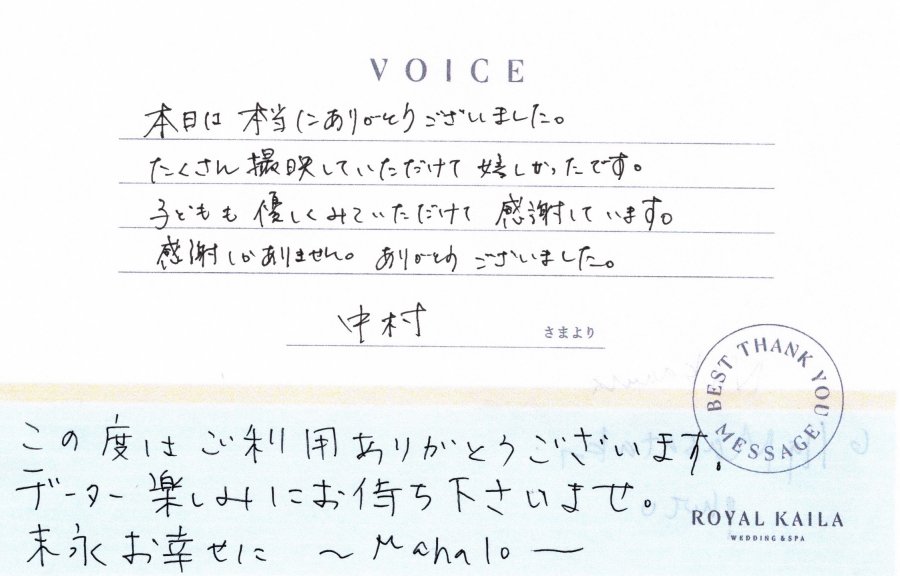 VOICE
本日は本当にありがとうございました。
たくさん撮映していただけて嬉しかったです。
子どもも優しくみていただけて感謝しています。
感謝しかありません。ありがとうございました。
中村 さまより
BEST THANK YOU MESSAGE
この度はご利用ありがとうございます。
データー楽しみにお待ち下さいませ。
末永お幸せに ～Mahalo―
ROYAL KAILA
WEDDING & SPA